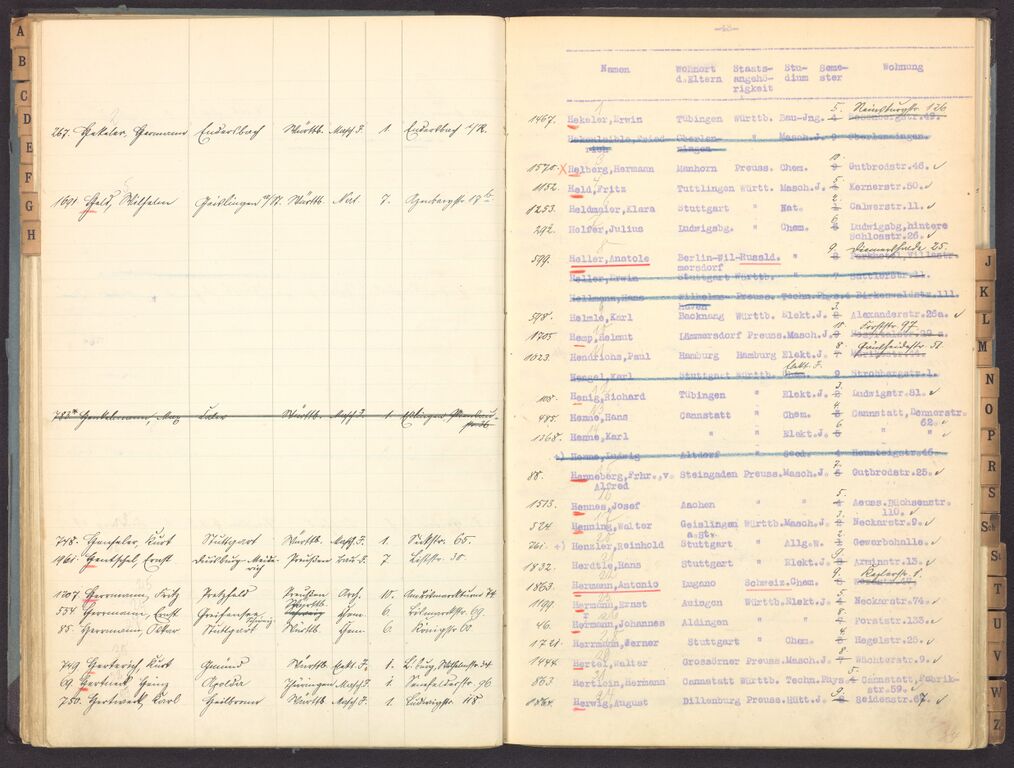 A
B
C
D
E
F
G
H
267. Hekeler, Hermann Endersbach Württb. Masch.J. 1. Endersbach
1691 Held, Wilhelm Geislingen Württb. Nat. 7.
783 Henkelmann, Max Württb. Masch.J. 1.
748. Henseler, Kurt Stuttgart Württb. Masch.J. 1. 65.
1961. Hentschel, Ernst Duisburg-Meiderich Preußen Bau-J. 7 Liststr. 30
1207 Herrmann, Fritz Preußen Arch. 10.
554 Herrmann, Ernst 6. Bismarckstr. 69.
85. Herrmann, Peter Stuttgart Württb. 6. Königstr. 60.
749 Herterich, Kurt Gmünd Württb. Elekt.J. 1.
69. Hertwich, Heinz Apolda Thüringen Masch.J. 1. Senefelderstr. 96
750. Hertweck, Karl Heilbronn Württb. Masch.J. 1. Ludwigstr. 118
-43-
Namen Wohnort d.Eltern Staats-angehö-rigkeit Stu-dium Seme-ster Wohnung
5. Reinsburgstr 126
1467. Hekeler, Erwin Tübingen Württb. Bau-Jng. 4
Hekenleible, Fried- Oberlen- " Masch.J. 9 Oberlenningen.
rich ningen
10.
1570. X Helberg, Hermann Manhorn Preuss. Chem. 9 Gutbrodstr.46.
5.
1152. Held, Fritz Tuttlingen Württ. Masch.J. 4 Kernerstr.50.
2.
1253. Heldmaier, Klara Stuttgart " Nat. 1 Calwerstr.11.
6
292. Helfer, Julius Ludwigsbg. " Chem. 5 Ludwigsbg, hintere
Schlosstr.26.
9. Diemershalde 25.
599. Heller, Anatole Berlin-Wil- Russld. " 8 Parkhotel, Villastr.
mersdorf
Heller, Erwin Stuttgart Württb. " 7 Sattlerstr.11.
Hellmann, Hans Wilhelms- Preuss. Techn.Phys.4 Birkenwaldstr.111.
haven 3.
598. Helmle, Karl Backnang Württb. Elekt.J. 2 Alexanderstr.26a.
10 Forststr. 97
1705 Hemp, Helmut Lämmersdorf Preuss. Masch.J. 9
8
1023. Hendrichs, Paul Hamburg Hamburg Elekt.J. 7
Elekt.J.
Hengel, Karl Stuttgart Württb. Chem. 9 Strohbergstr.1.
3.
108. Henig, Richard Tübingen " Elekt.J. 2 Ludwigstr.81.
4
485. Henne, Hans Cannstatt " Chem. 3 Cannstatt, Dennerstr.
6 62.
1368. Henne, Karl " " Elekt.J. 5 "
+) Henne, Ludwig Altdorf " Geod. 4 Hohsteigstr.46.
7.
88. Henneberg, Frhr.,v. Steingaden Preuss. Masch.J. 6 Gutbrodstr.25.
Alfred
5.
1513. Hennes, Josef Aachen " " 4 Aeuss.Büchsenstr.
3. 110.
524 Henning, Walter Geislingen Württb. Masch.J. 2 Neckarstr.9.
a.Stv. 2
261. +) Henzler, Reinhold Stuttgart " Allg.W. 1 Gewerbehalle.
9
1832. Herdtle, Hans Stuttgart " Elekt.J. 8 Arminstr.13.
9. Keplerstr. 1.
1863. Hermann, Antonio Lugano Schweiz. Chem. 8
5
1199 Hermann, Ernst Auingen Württb. Elekt.J. 4 Neckarstr.74.
7
46. Hermann, Johannes Aldingen " " 6 Forststr.133.
4
1721. Herrmann, Werner Stuttgart " Chem. 3 Hegelstr.25.
8
1444. Hertel, Walter Grossörner Preuss. Masch.J. 7 Wächterstr.9.
5.
863 Hertlein, Hermann Cannstatt Württb. Techn.Phys. 4 Cannstatt, Fabrik-
9 str.59.
1864. Herwig, August Dillenburg Preuss. Hütt.J. 8 Seidenstr.67.
J
K
L
M
N
O
P
R
S
Sch
St
T
U
V
W
Z